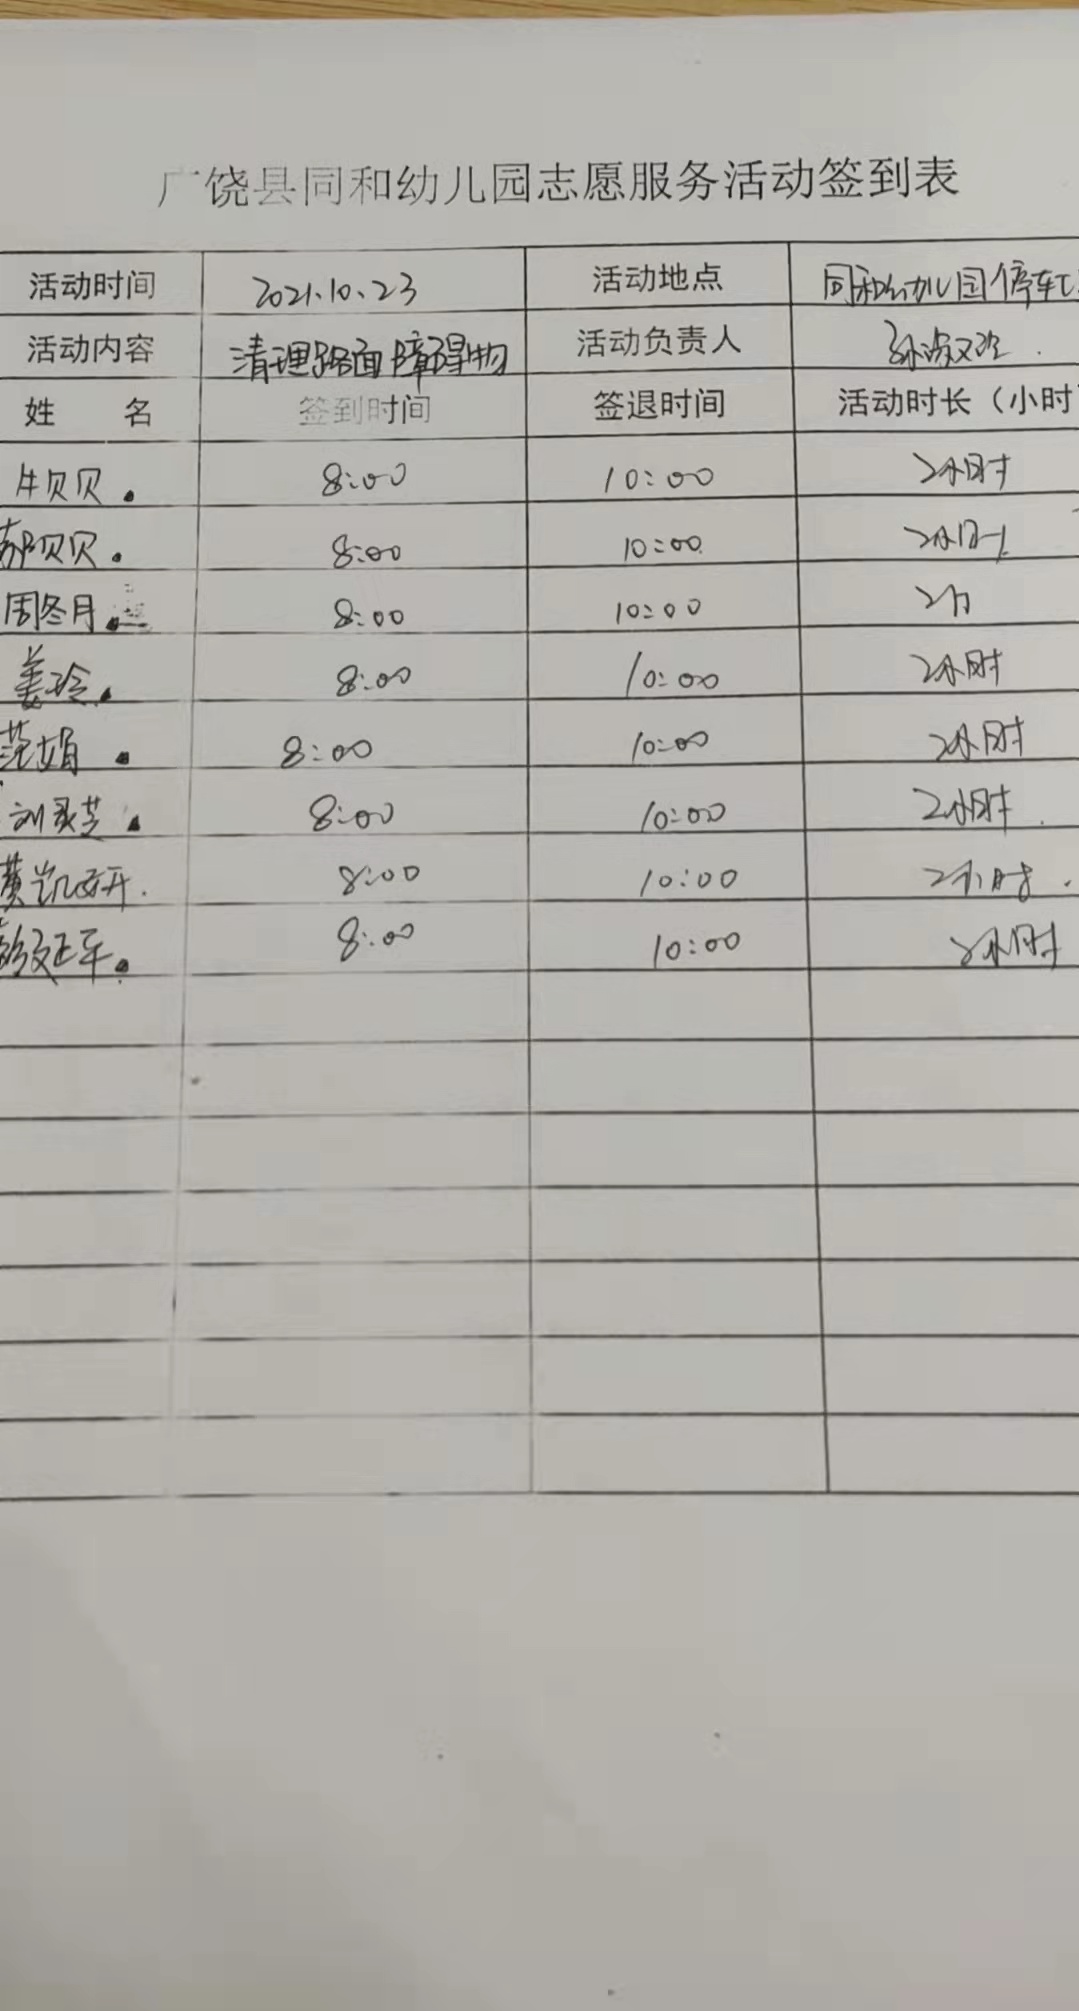 广饶县同和幼儿园志愿服务活动签到表
活动时间 2021.10.23 活动地点 同和幼儿园停车
活动内容 清理路面障碍物 活动负责人
姓 名 签到时间 签退时间 活动时长（小时
牛贝贝. 8:00 10:00 2小时
贝贝. 8:00 10:00 2小时
周冬月. 8:00 10:00 2小
姜玲. 8:00 10:00 2小时
范娟. 8:00 10:00 2小时
刘灵芝. 8:00 10:00 2小时.
黄凯妍. 8:00 10:00 2小时.
8:00 10:00 2小时